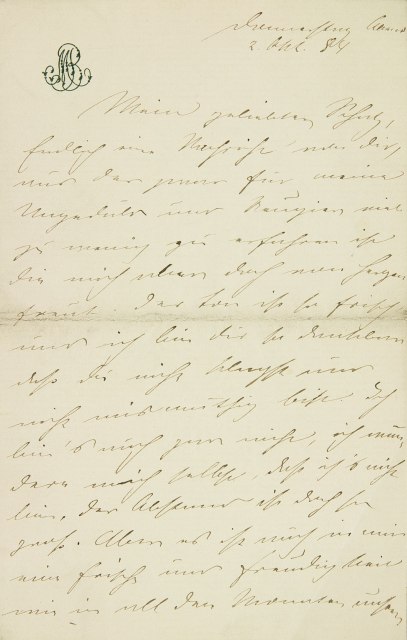 Donnerstag Abend
2. Okt. 84
Mein geliebter Schatz,
Endlich eine Nachricht von dir,
aus der zwar für meine
Ungeduld und Neugier viel
zu wenig zu erfahren ist
die mich aber doch von Herzen
freut. Der Ton ist so frisch
und ich bin dir so dankbar
daß du nicht klagst und
nicht mismuthig bist. Ich
bin's auch gar nicht, ich wun-
dere mich selbst, daß ich's nicht
bin, der Abstand ist doch so
groß. Aber es ist auch in mir
eine Frische und Freudigkeit
wie in all den Monaten